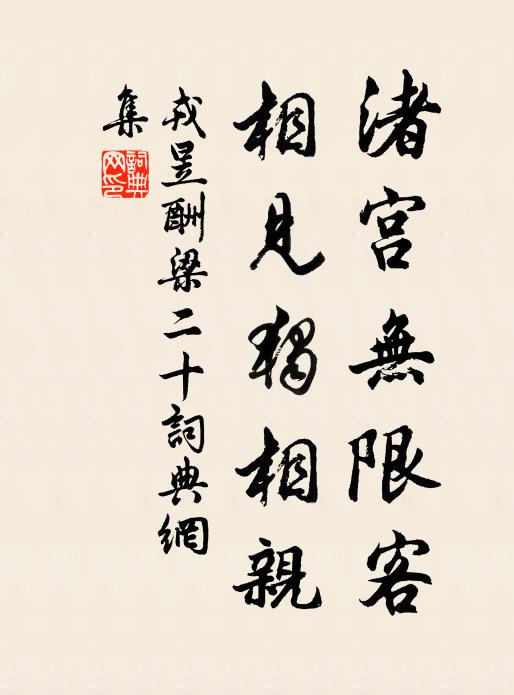 渚宮無限客
相見獨相親
戎昱酬梁二十詞典網
集
詞典網印